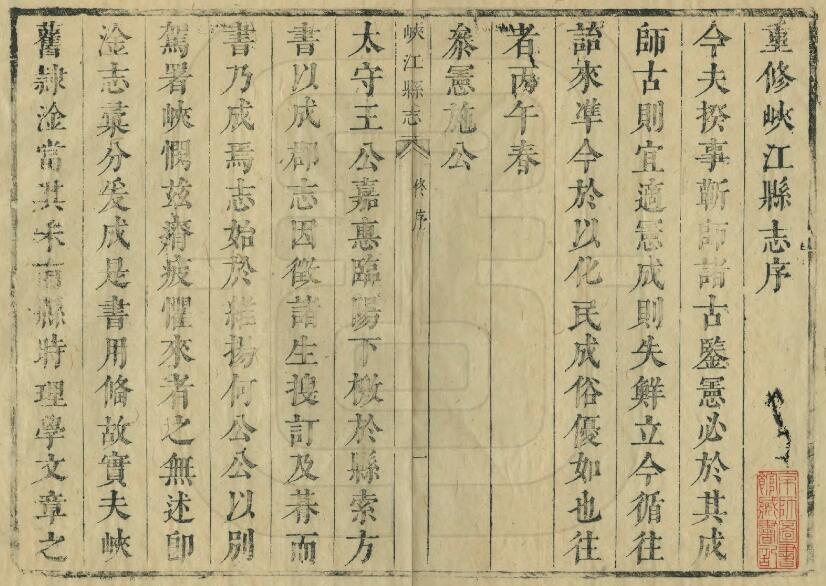 重修峽江縣志序
今夫揆事靳師諸古鑒憲必於其成
師古則宜適憲成則失鮮立今循往
詒來準今於以化民成俗優如也往
者丙午春
叅憲施公
峽江縣志 修序 一
太守王公嘉惠臨陽下檄於縣索方
書以成郡志因徵諸生搜訂及朞而
書乃成焉志始於維揚何公公以別
駕署峽憫兹瘠疲懼來者之無述卽
淦志彙分爰成是書用脩故實夫峽
舊隷淦當其未甫縣時理學文章之